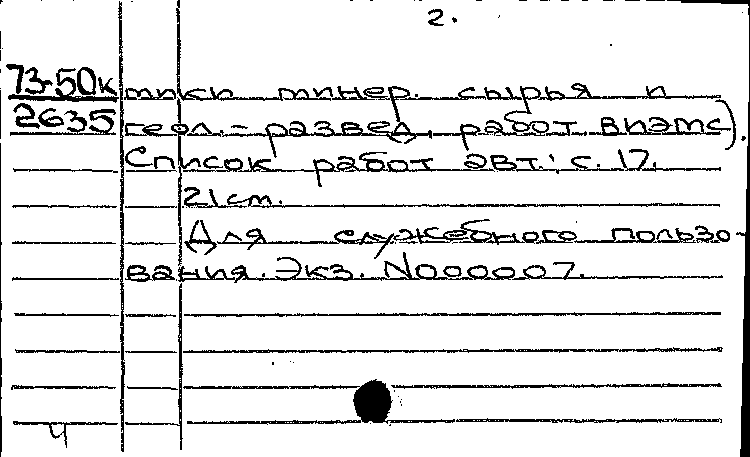 2.
73-50к тики минер. сырья и
2635 геол.-развед. работ. ВИЭМС).
Список работ авт.: с. 17.
21 см.
Для служебного пользо-
вания. Экз. N000007.
4